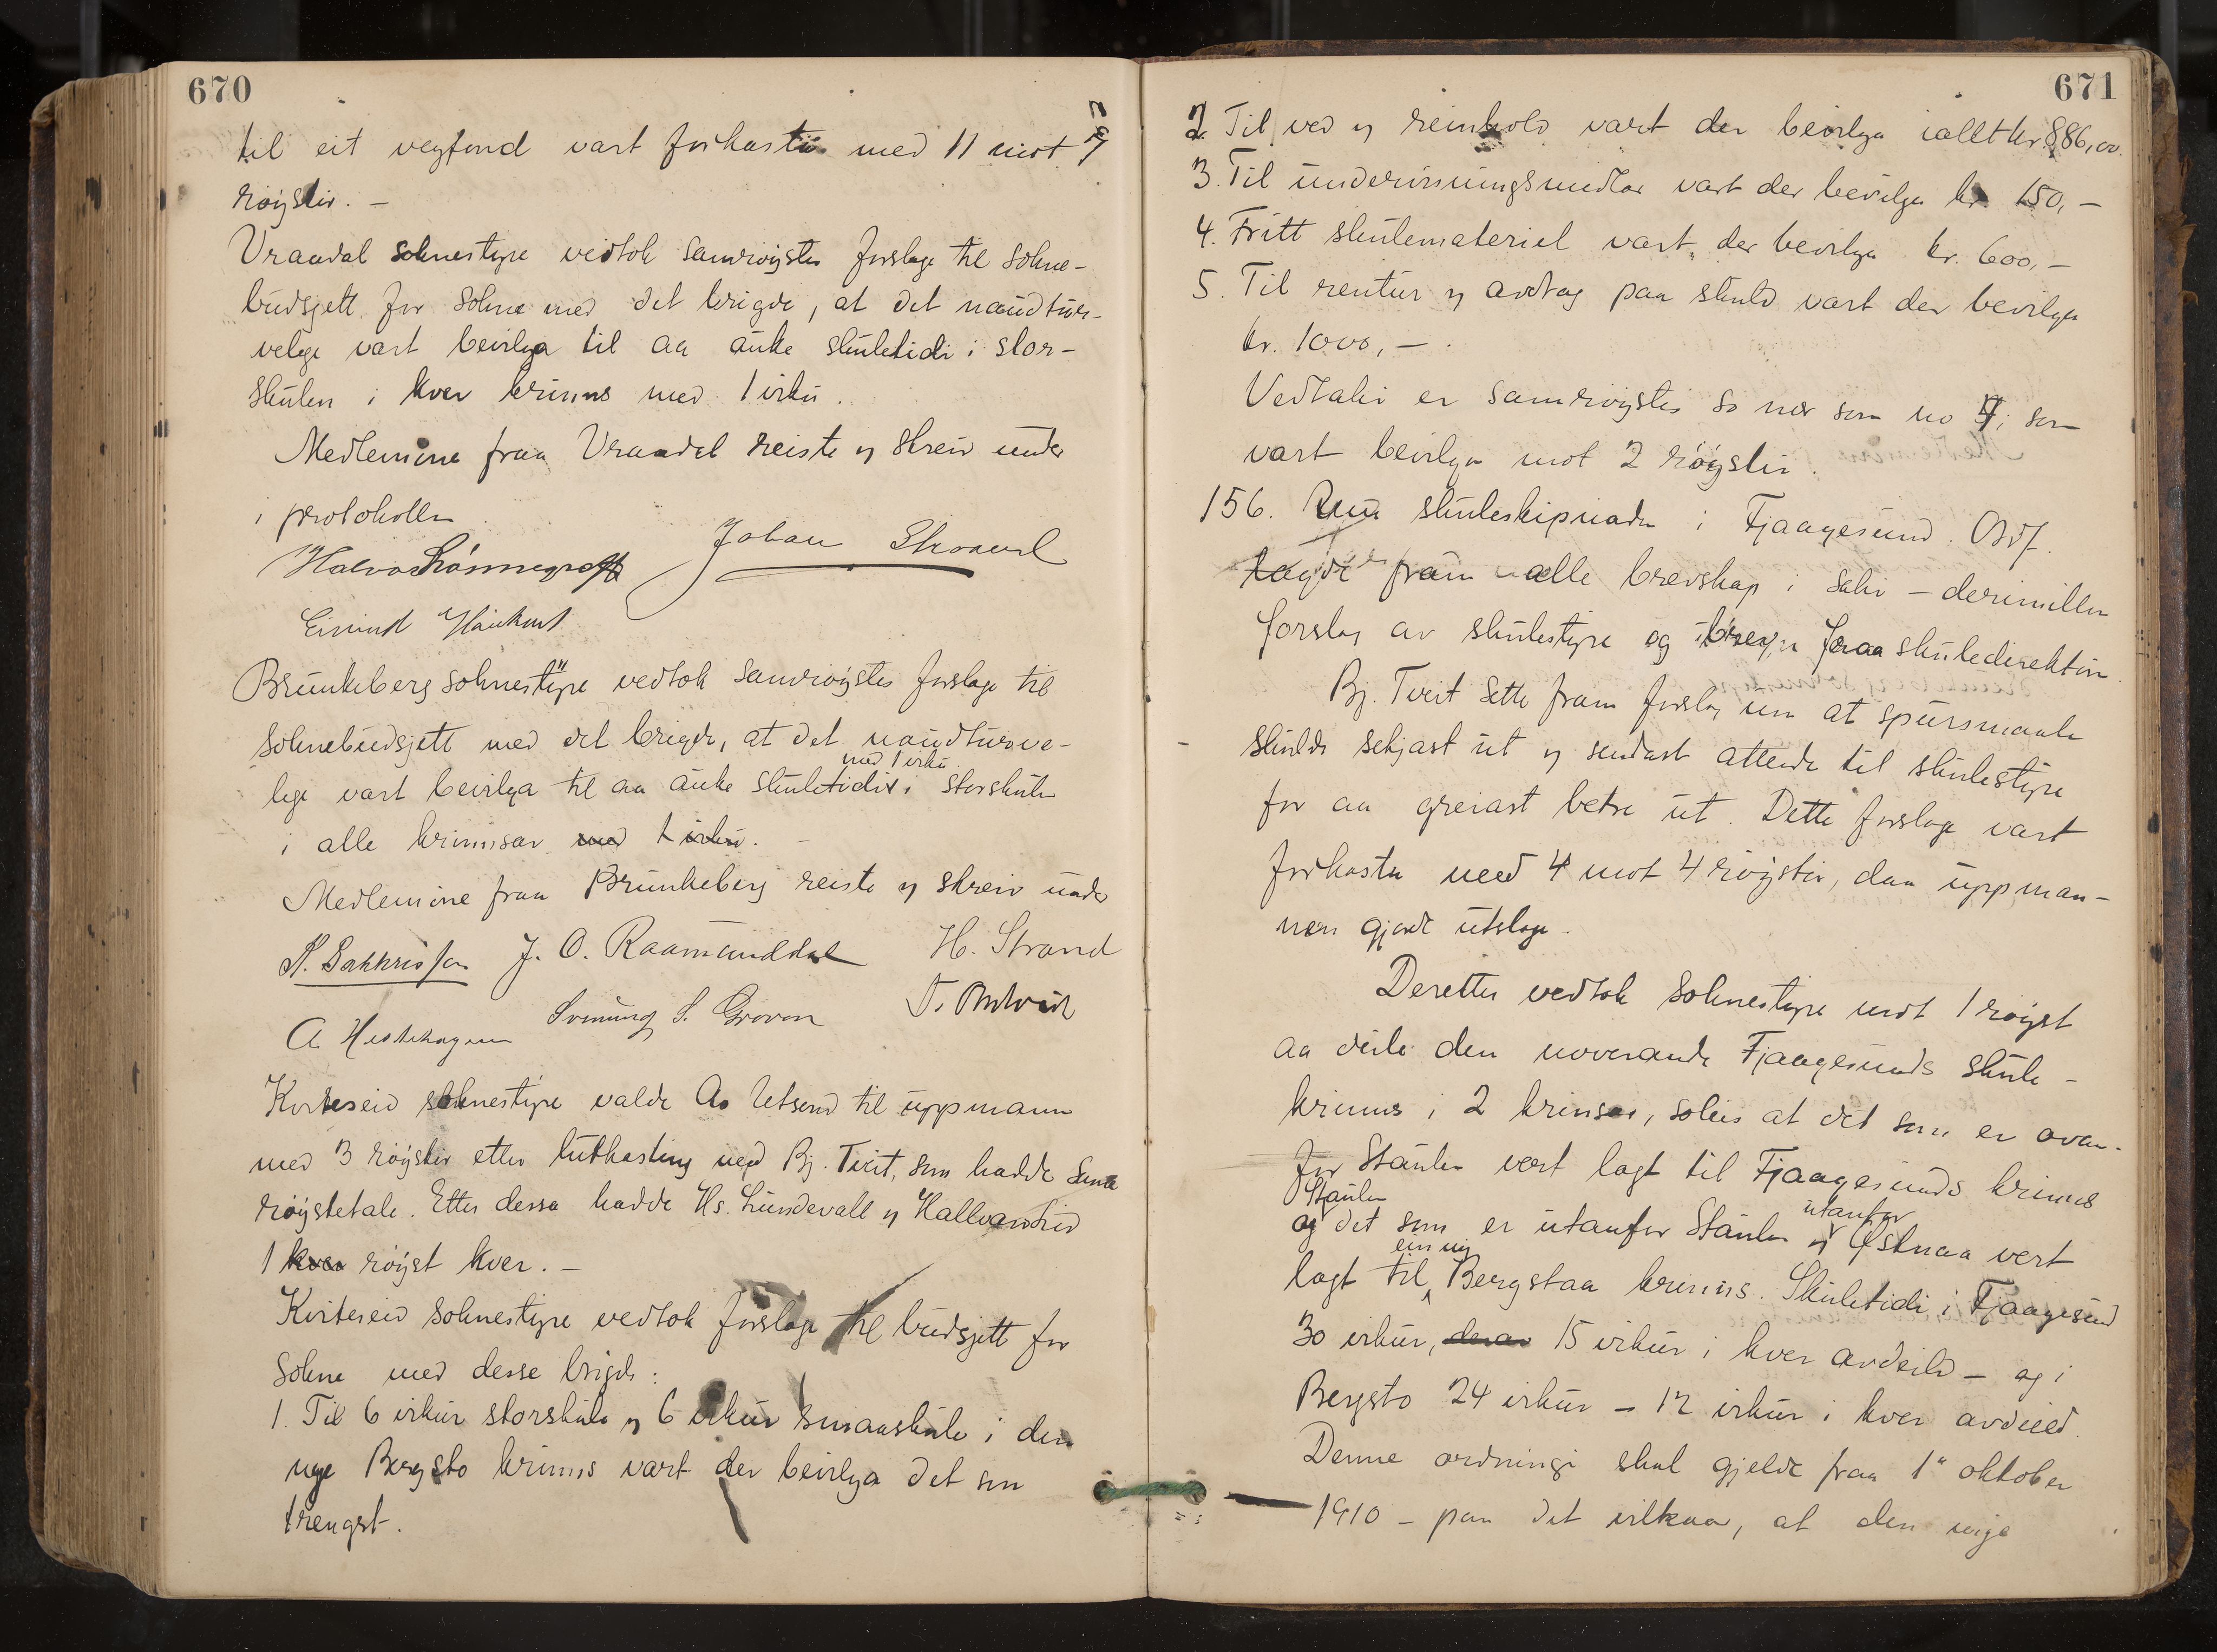 670
til eit vegfond vart forkasta med 11 mot 7
røyster. —
Vraadal soknestyre vedtok samrøystes forslage til sokne-
budsjett for sokne med det brigde, at det naudtur-
velege vart bevilga til aa auke skuletidi i stor-
skulen i kver krinns med 1 viku.
Medlemine fraa Vraadal reiste og skreiv under
i protokollen
Halvor Lønnegraff Johan Skomedal
Eivind Haukum
Brunkeberg soknestyre vedtok samrøystes forslage til
soknebudsjett med det brigde, at det naudturve-
med 1 viku
lege vart bevilga til aa auke skuletidi i storskule
i alle krinnsar med 1 viku.
Medlemine fraa Brunkeberg reiste og skreiv under
J. O. Raamunddal H. Strand
A Hestehagen Sveinung S. Groven
Kviteseid soknestyre valde As Utsund til uppmann
med 3 røyster etter lutkasting med Bj. Tveit, som hadde same
røystetale. Etter dessa hadde Hs. Lundevall og Hallvard
1 kver røyst kver. —
Kviteseid soknestyre vedtok forslage til budsjett for
sokne med desse brigde:
1. Til 6 vikur storskule og 6 vikur smaaskule i den
nye Bergsto krinns vart der bevilga det som
trengst.
671
2. Til ved og reinhold vart der bevilga ialt kr. 886,00.
3. Til undervisningsmidlar vart der bevilga kr 150, —
4. Fritt skulemateriel vart der bevilga kr. 600, —
5. Til rentur og avdrag paa skuld vart der bevilga
kr. 1000, — .
Vedtaki er samrøystes so nær som no 4, som
vart bevilga mot 2 røyster.
156. Um skuleskipnaden i Fjaagesund. Ordf.
lagde fram alle brevskap i saki — derimillom
forslag av skulestyre og brev fraa skuledirektøren.
Bj. Tveit sette fram forslag um at spursmaale
skulde setjast ut og sendast attende til skulestyre
for aa greiast betre ut. Dette forslage vart
forkasta med 4 mot 4 røyster, daa uppman-
nen gjorde utslage.
Deretter vedtok soknestyre mot 1 røyst
aa deile den noverande Fjaagesunds skule-
krinns i 2 krinsar, soleis at det som er ovan-
for Staulen vert lagt til Fjaagesunds krinns
Staulen
utanfor
og det som er utanfor Staulen og Østnaa vert
ein ny
lagt til Bergstaa krinns. Skuletidi i Fjaagesund
30 vikur, derav 15 vikur i kver avdeild — og i
Bergsto 24 vikur — 12 vikur i kver avdeild.
Denne ordningi skal gjelde fraa 1" oktober
1910 — paa det vilkaar, at den nye